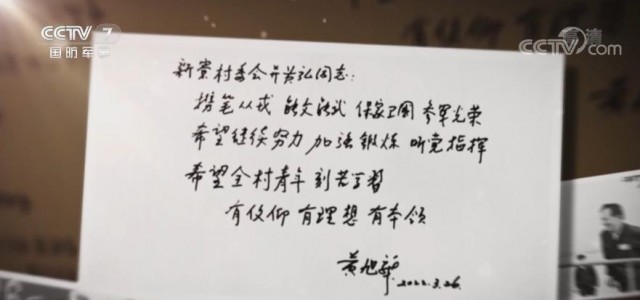 CCTV 7
国防军事
CCTV.com
新寮村委会并黄弘同志：
携笔从戎 能文能武 保家卫国 参军光荣
希望继续努力 加强锻炼 听党指挥
希望全村青年 刻苦学习
有信仰 有理想 有本领
黄旭华
2022.3.26.